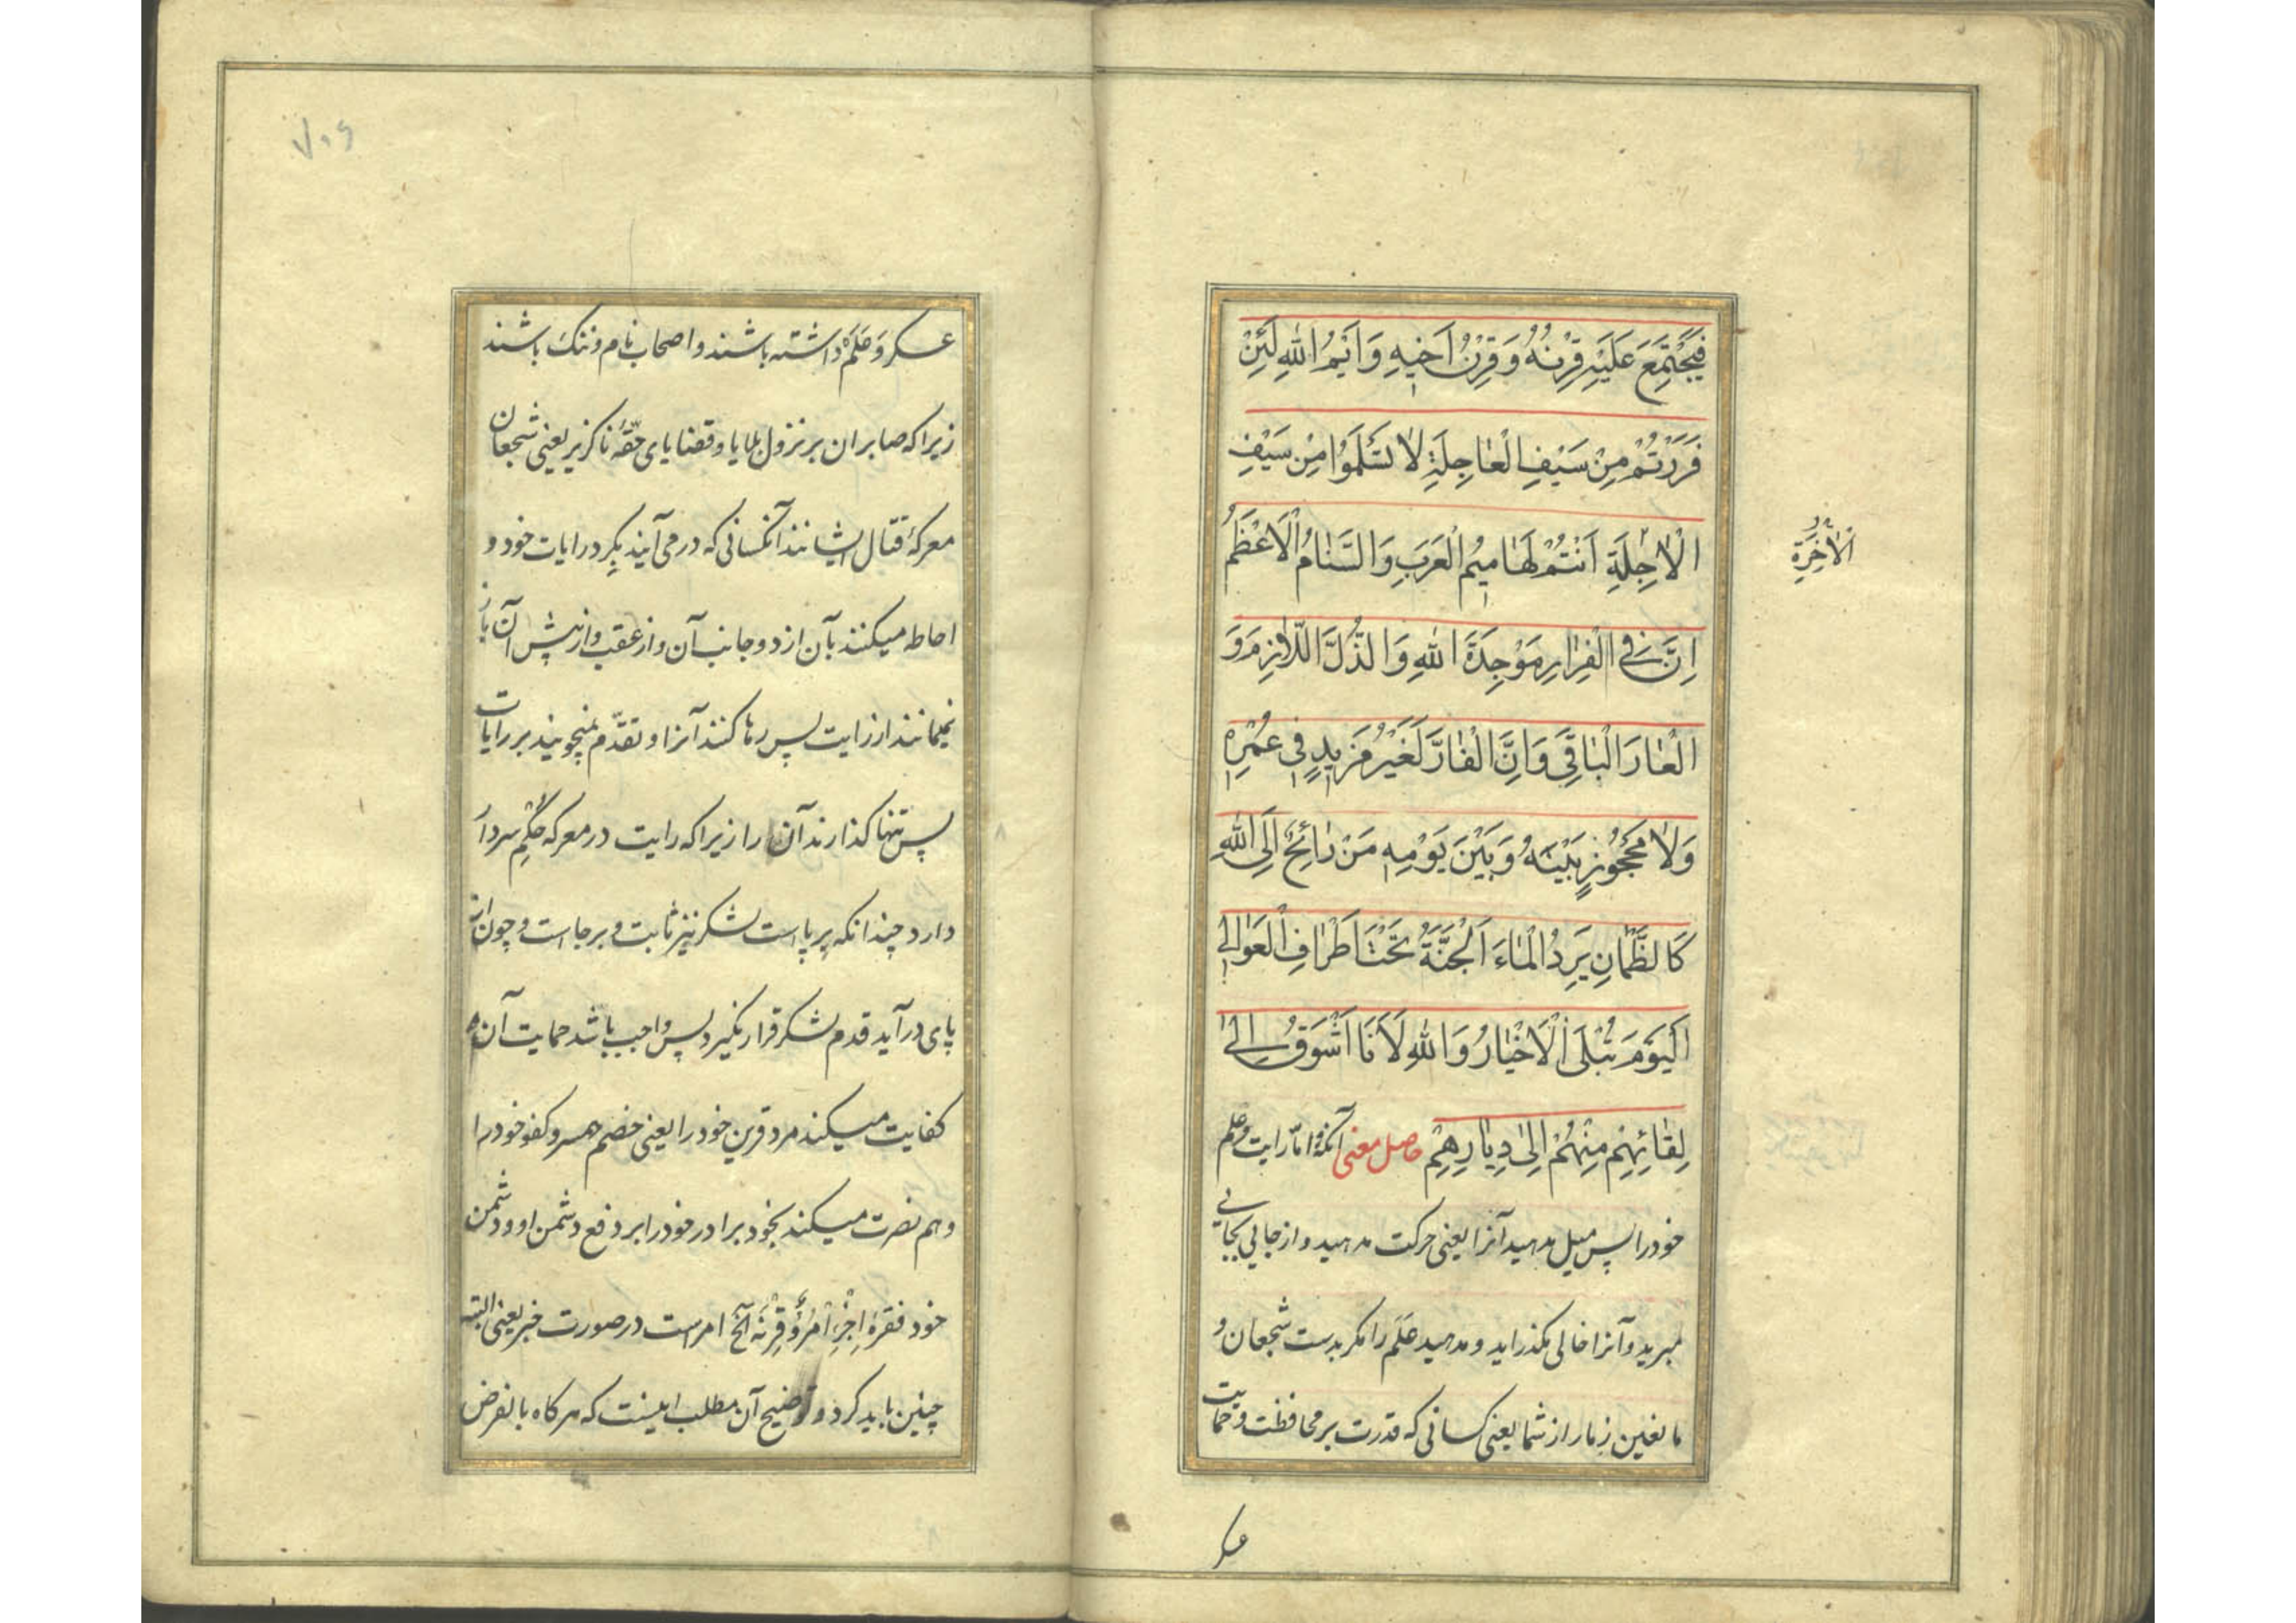 فَيَجْتَمِعَ عَلَيْهِ قِرْنُهُ وَقِرْنُ اَخٖيهِ وَ اَيْمُ اللهِ لَئِنْ
فَرَرْتُمْ مِنْ سَيْفِ الْعٰاجِلَةِ لاٰ تَسْلَمُوا مِنْ سَيْفِ
الْاٰجِلَةِ اَنْتُمْ لَهٰامٖيمُ الْعَرَبِ وَ السَّنٰامُ الْاَعْظَمُ
الْاٰخِرَةِ
اِنَّ فِي الْفِرٰارِ مَوْجِدَةَ اللهِ وَ الذُّلَّ اللّٰازِمَ وَ
الْعٰارَ الْبٰاقِيَ وَ اِنَّ الْفٰارَّ لَغَيْرُ مَزٖيدٍ فٖي عُمْرِهٖ
وَلاٰ مَحْجُوزٍ بَيْنَهُ وَبَيْنَ يَوْمِهٖ مَنْ رٰائِحٌ اِلَى اللهِ
كَالظَّمْاٰنِ يَرِدُ الْمٰاءَ اَلْجَنَّةُ تَحْتَ اَطْرٰافِ الْعَوٰالٖي
اَلْيَوْمَ تُبْلَى الْاَخْبٰارُ وَ اللهِ لَاَنَا اَشْوَقُ اِلٰى
لِقٰائِهِمْ مِنْهُمْ اِلىٰ دِيٰارِهِمْ حاصل معنى آنكه و امّا رايت و علم
خود را پس ميل مدهيد آنرا يعنى حركت مدهيد و از جائى بجائى
مبريد و آنرا خالى مگذرايد و مدهيد عَلَم را مگر بدست شجعان و
مانعين ذمار از شما يعنى كسانى كه قدرت بر محافظت و حمايت
عسكر و عَلَم داشته باشند و اصحاب نام و ننگ باشند
زيرا كه صابران بر نزول بلايا و قضاياى حقّهٔ ناگزير يعنى شجعان
معركهٔ قتال ايشانند آنكسانى كه در مى‌آيند بگرد رايات خود و
احاطه ميكنند بآن از دو جانب آن و از عقب و از پيش آن باز
نميمانند از رايت پس رها كنند آنرا و تقدّم نميجويند بر رايات
پس تنها گذارند آن را زيرا كه رايت در معركه حُكمِ سردار
دارد چندانكه برپاست لشكر نيز ثابت و برجاست و چون از
پاى در آيد قدم لشكر قرار نگيرد پس واجب باشد حمايت آن
كفايت ميكند مرد قرين خود را يعنى خصم همسر و كفو خود را
و هم نصرت ميكند بخود برادر خود را بر دفع دشمن او و دشمن
خود فقرهٔ اِجْزَءِ امْرُؤٌ قِرْنَهُ آلخ امر است در صورت خبر يعنى البته
چنين بايد كرد و توضيح آن مطلب اينست كه هر گاه بالفرض